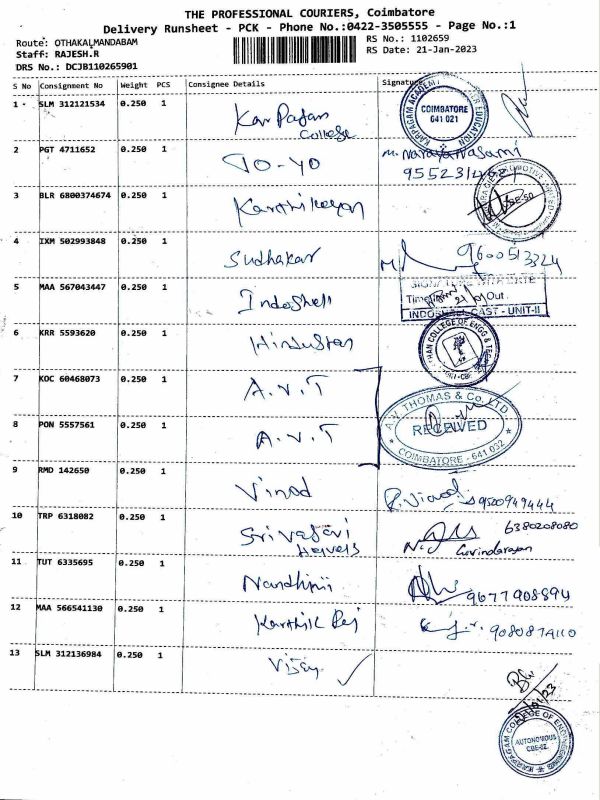 THE PROFESSIONAL COURIERS, Coimbatore
Delivery Runsheet - PCK - Phone No.:0422-3505555 - Page No.:1
Route: OTHAKALMANDABAM RS No.: 1102659
Staff: RAJESH.R RS Date: 21-Jan-2023
DRS No.: DCJB110265901
S No Consignment No Weight PCS Consignee Details Signature
1 SLM 312121534 0.250 1 Karpagam College
KARPAGAM ACADEMY EDUCATION COIMBATORE 641 021
2 PGT 4711652 0.250 1 TO-YO M. Narayanasami
3 BLR 6800374674 0.250 1 Karthikeyan
4 IXM 502993848 0.250 1 Sudhakar 9600513324
SIGNATURE WITH DATE
5 MAA 567043447 0.250 1 Indoshell Time Out
INDOSHELL CAST - UNIT-II
6 KRR 5593620 0.250 1 Hindustan
COLLEGE OF ENGG &
7 KOC 60468073 0.250 1 A.V.T
A.V. THOMAS & Co. LTD.
RECEIVED
COIMBATORE - 641 032
8 PON 5557561 0.250 1 A.V.T
9 RMD 142650 0.250 1 Vinod 9500949444
10 TRP 6318082 0.250 1 Srivasavi 6380208080
Govindarajan
11 TUT 6335695 0.250 1 Nandhini 9677908894
12 MAA 566541130 0.250 1 Karthik Raj
13 SLM 312136984 0.250 1 Vijay
KARPAGAM COLLEGE OF ENGINEERING
AUTONOMOUS
CBE-32